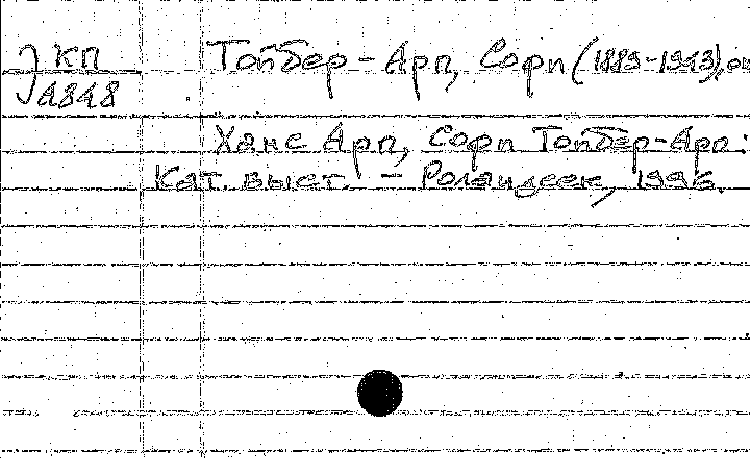 КП Тойбер-Арп, Софи (1889-1943), о
А848
Ханс Арп, Софи Тойбер-Арп:
Кат. выст. - Роландсек, 1996.